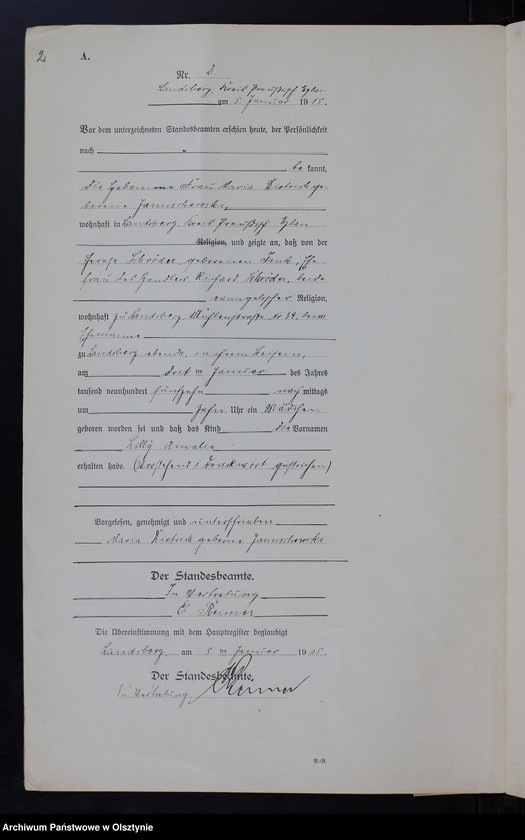 2
A.
Nr. 2
Landsberg, Kreis Preußisch Eylau
am 5. Januar 1915.
Vor dem unterzeichneten Standesbeamten erschien heute, der Persönlichkeit
nach
be kannt,
die Hebamme Frau Maria ge-
borene Jannschewski,
wohnhaft in Landsberg Kreis Preußisch Eylau
Religion, und zeigte an, daß von der
Schröder, geborenen Ehe-
frau des Händlers Richard Schröder, beide
evangelischer Religion,
wohnhaft zu Landsberg, Mühlenstraße Nr 34, beim
Ehemanne
zu Landsberg ebenda, in ihrem Beisein,
am Januar des Jahres
tausend neunhundert fünfzehn nach mittags
um zehn Uhr ein Mädchen
geboren worden sei und daß das Kind die Vornamen
Lilly Amalie
erhalten habe. (Vorstehend 1 Druckwort gestrichen)
Vorgelesen, genehmigt und unterschrieben
Maria geborne Jannschewski
Der Standesbeamte.
In Vertretung
E Reimer
Die Übereinstimmung mit dem Hauptregister beglaubigt
Landsberg am 5 ten Januar 1915.
Der Standesbeamte,
In Vertretung Reimer
R.-R.
Archiwum Państwowe w Olsztynie